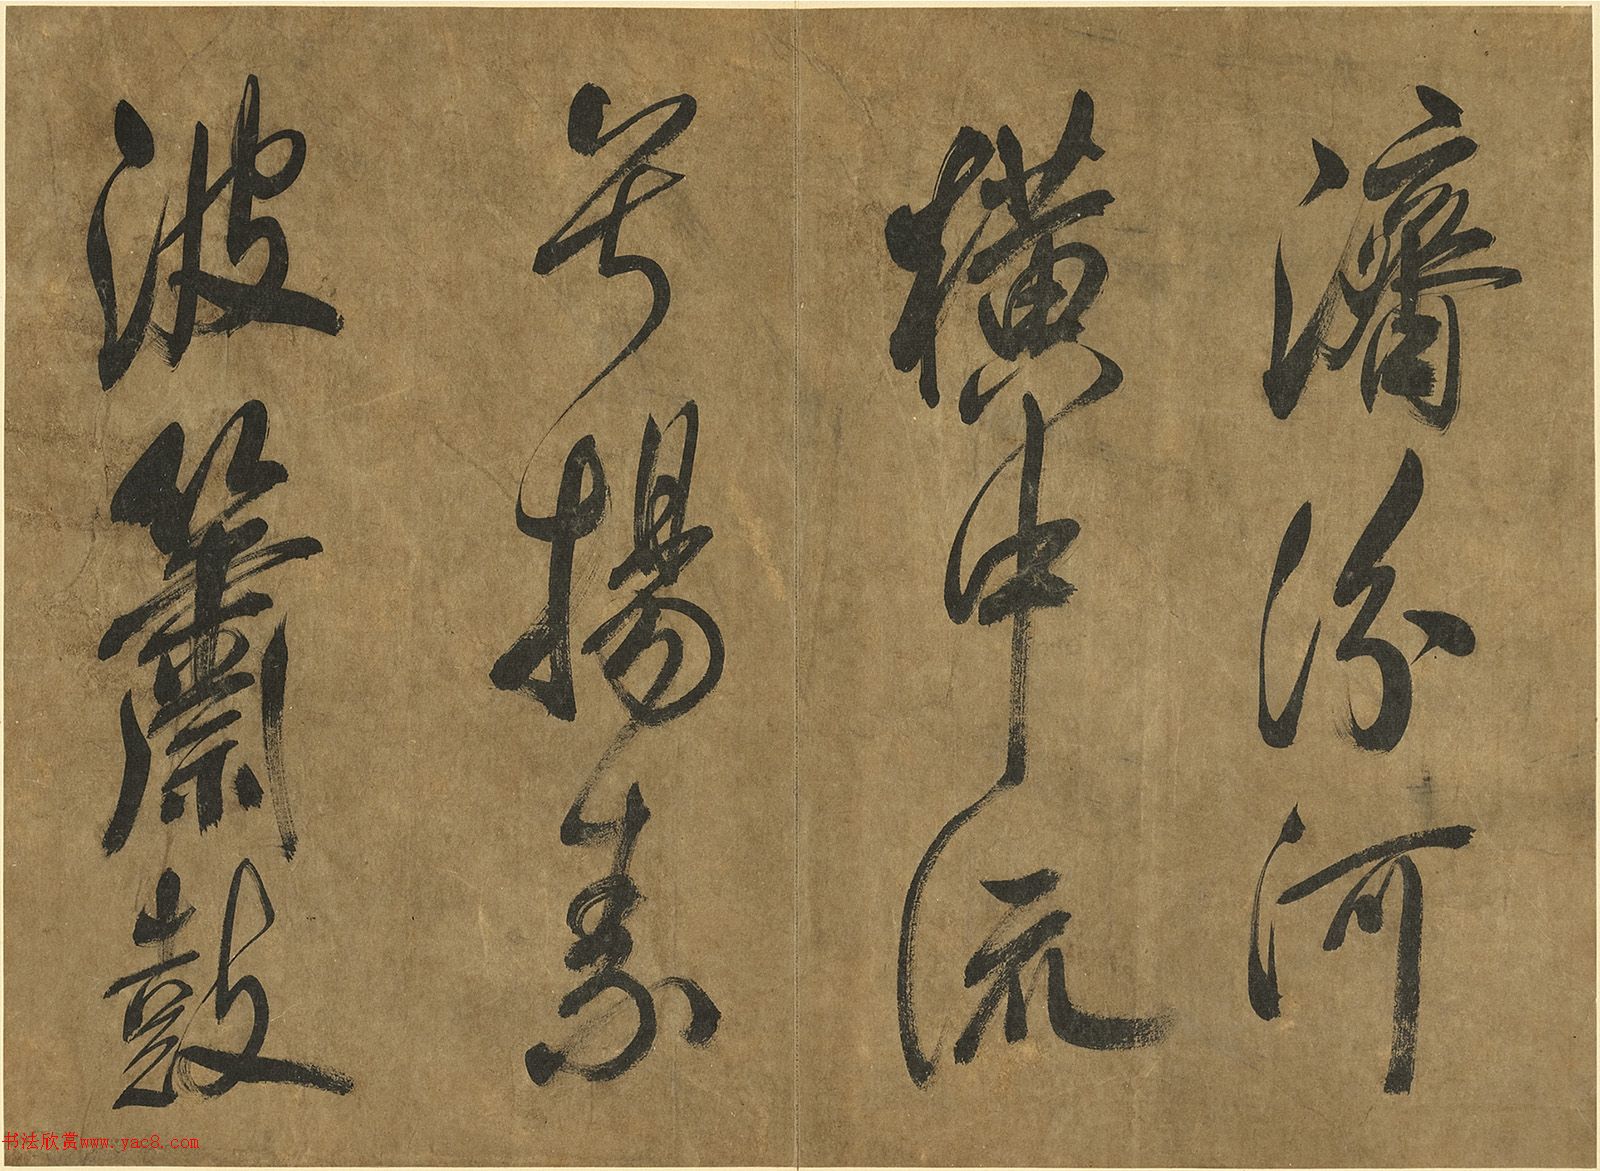 濟汾河
橫中流
兮揚素
波簫鼓
书法欣赏www.yac8.com